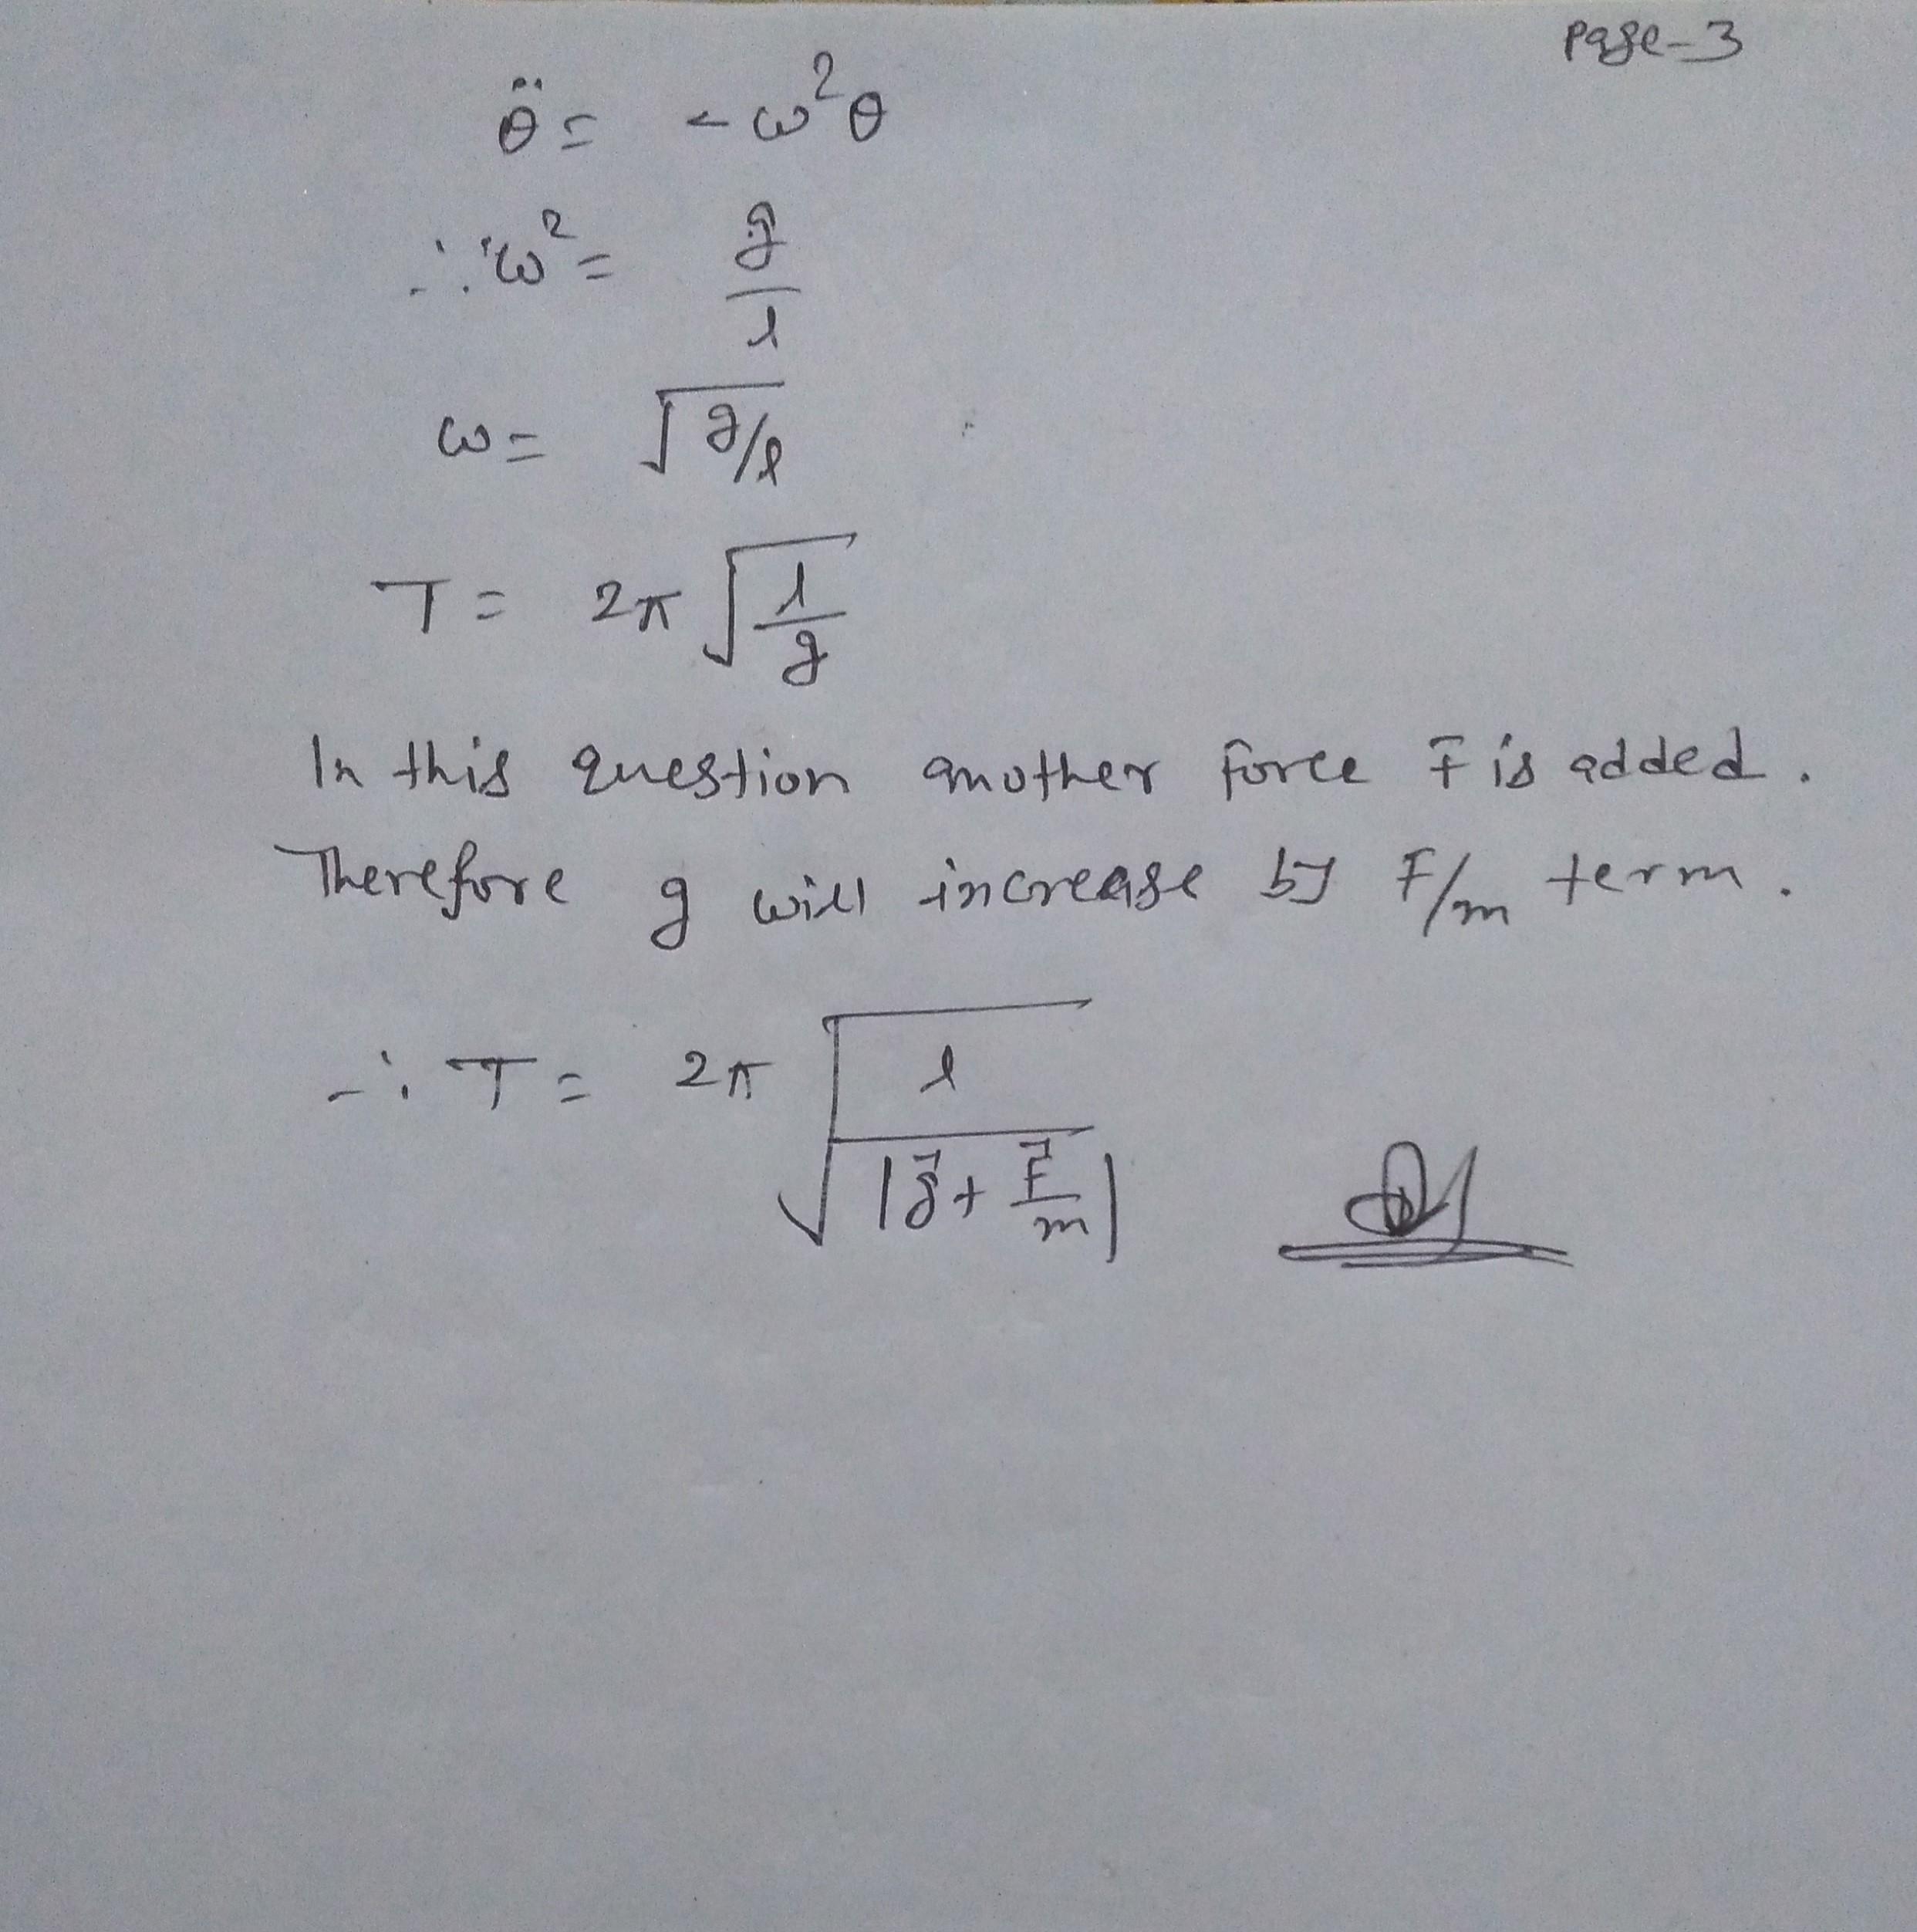 Page-3
θ̈ = -ω²θ
∴ ω² = g/l
ω = √g/l
T = 2π √(l/g)
In this question another force F is added.
Therefore g will increase by F/m term.
∴ T = 2π √(l/|g⃗ + F⃗/m|)